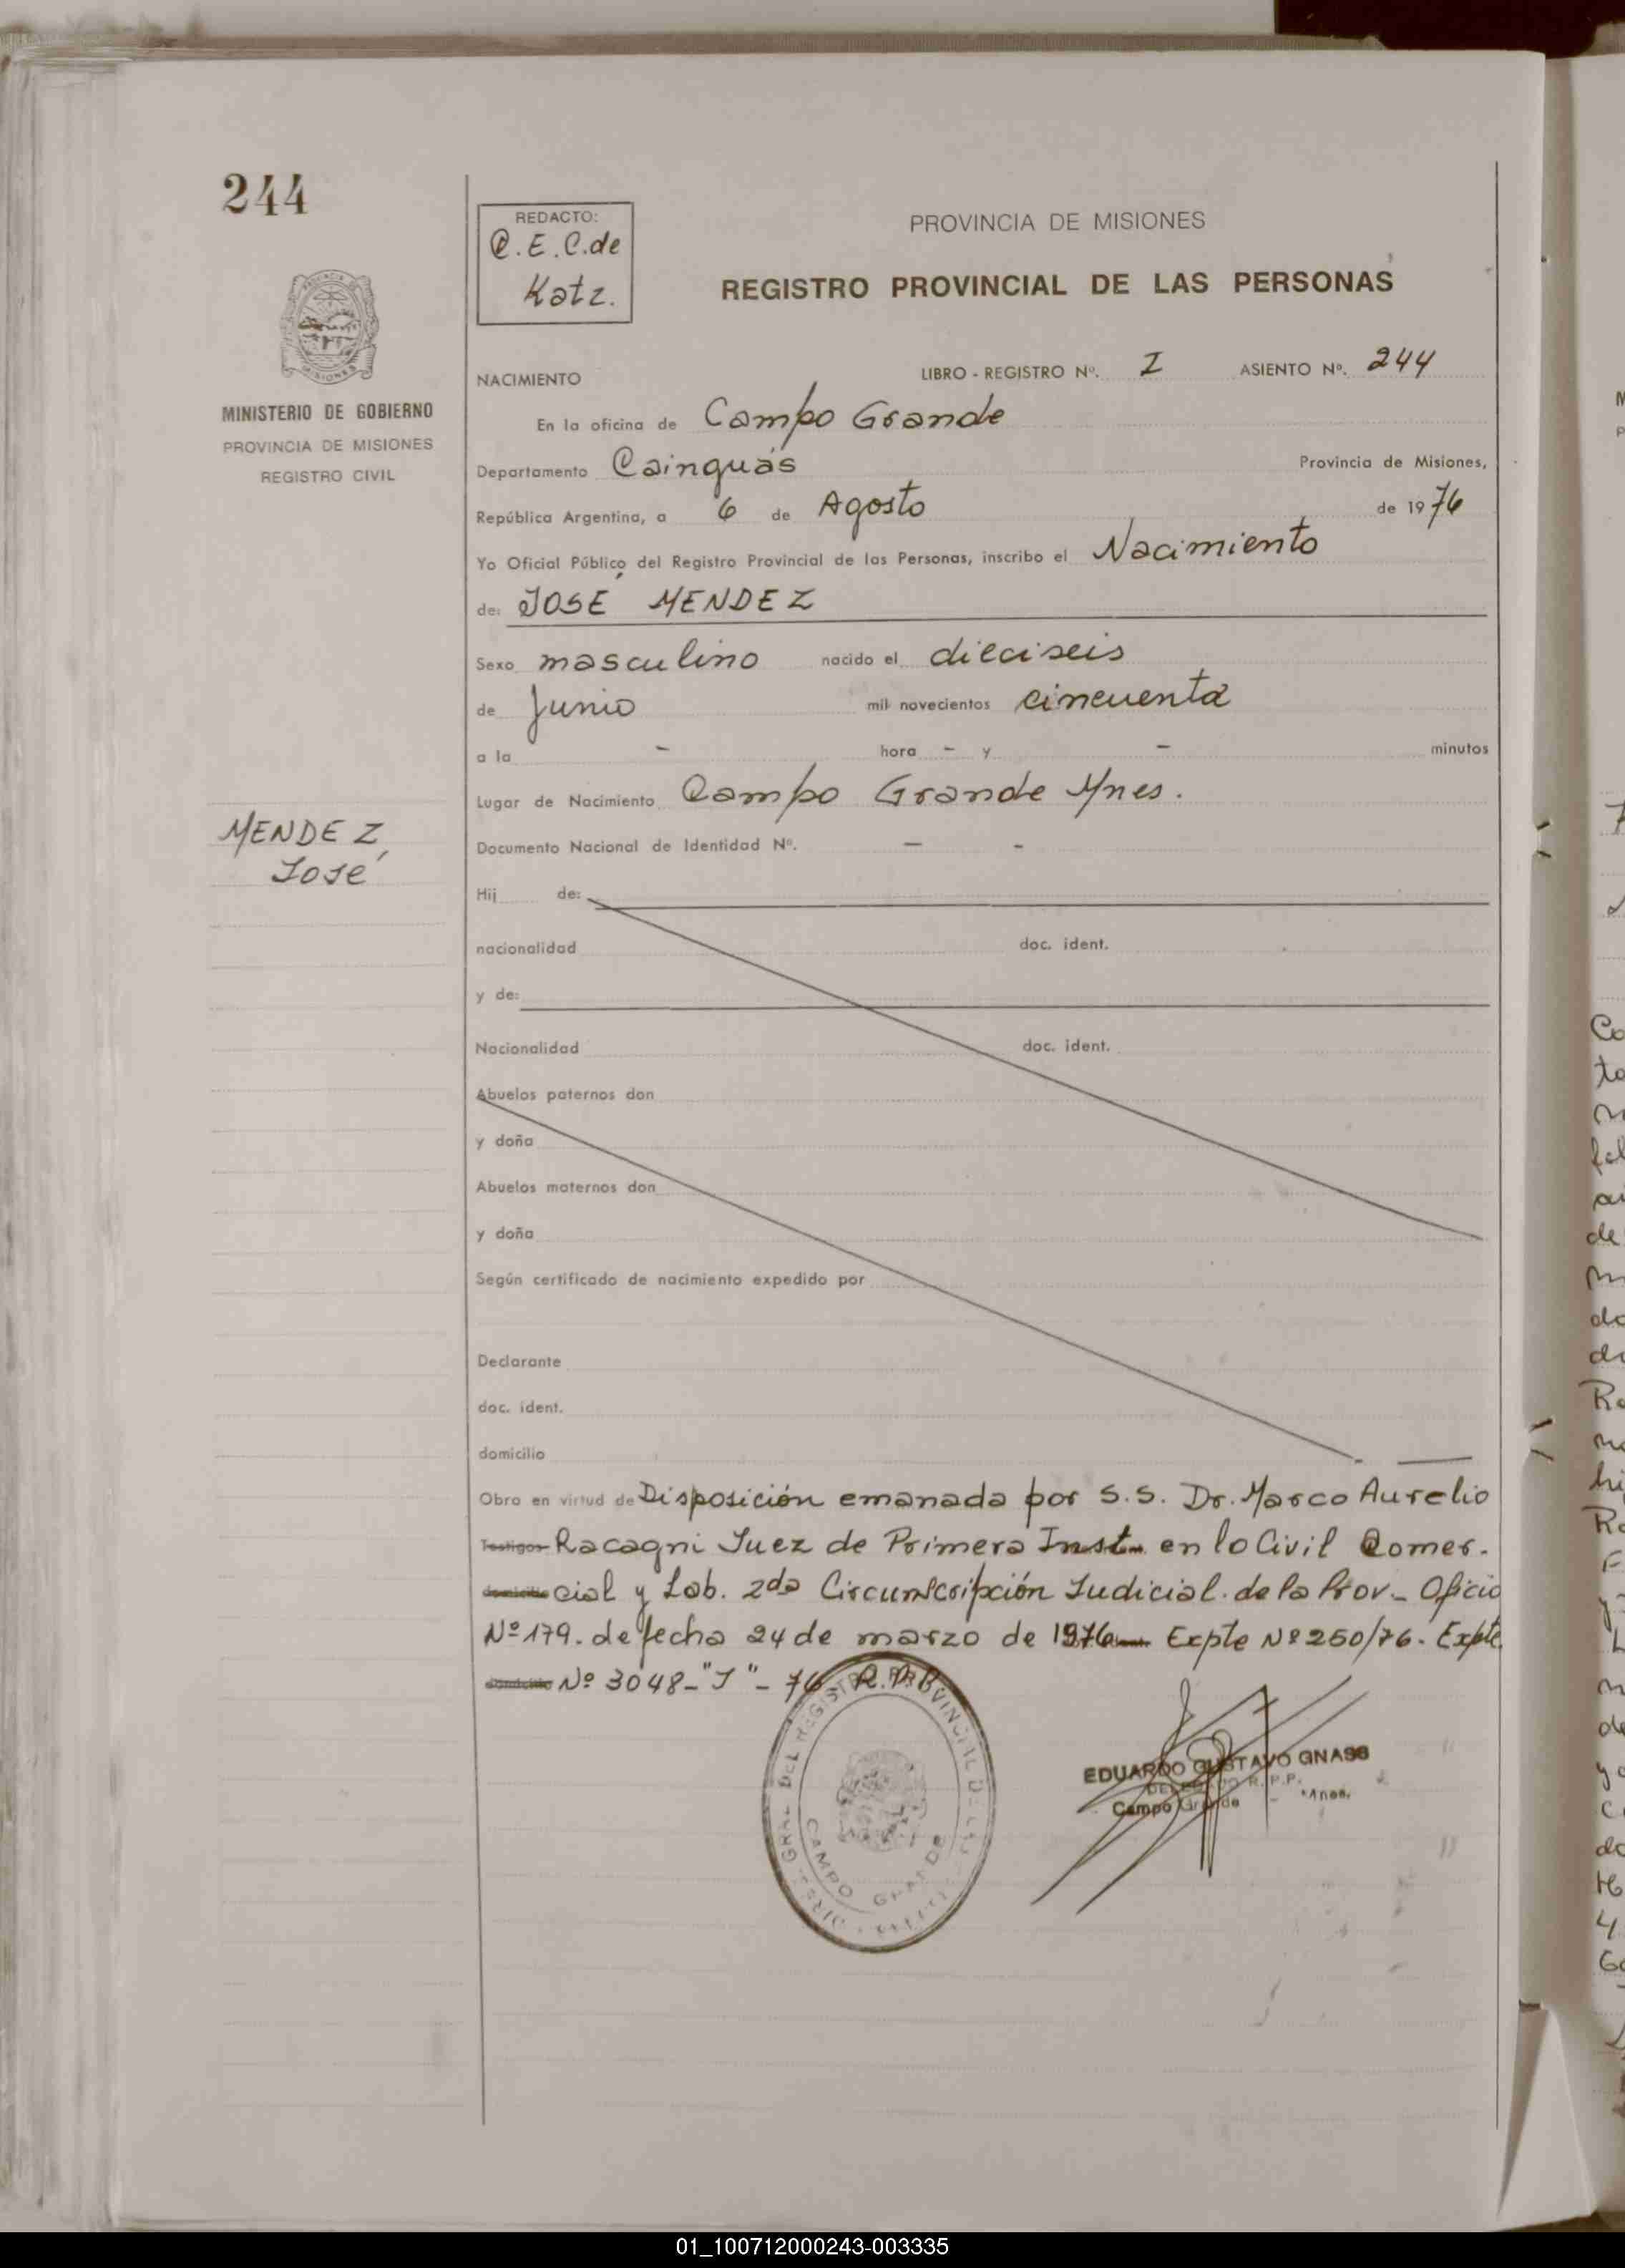 244
REDACTO:
C.E.C.de
Katz.
PROVINCIA DE MISIONES
REGISTRO PROVINCIAL DE LAS PERSONAS
MINISTERIO DE GOBIERNO
PROVINCIA DE MISIONES
REGISTRO CIVIL
NACIMIENTO LIBRO - REGISTRO Nº. I ASIENTO Nº. 244
En la oficina de Campo Grande
Departamento Cainguás Provincia de Misiones,
República Argentina, a 6 de Agosto de 1976
Yo Oficial Público del Registro Provincial de las Personas, inscribo el Nacimiento
de: JOSÉ MENDEZ
Sexo masculino nacido el dieciseis
de Junio mil novecientos cincuenta
a la - hora - y - minutos
Lugar de Nacimiento Campo Grande Mnes.
MENDEZ,
José
Documento Nacional de Identidad Nº. - -
Hij de:
nacionalidad doc. ident.
y de:
Nacionalidad doc. ident.
Abuelos paternos don
y doña
Abuelos maternos don
y doña
Según certificado de nacimiento expedido por
Declarante
doc. ident.
domicilio
Obra en virtud de Disposición emanada por S.S. Dr. Marco Aurelio
Testigos Racagni Juez de Primera Inst. en lo Civil Comer-
domicilio cial y Lab. 2da Circunscripción Judicial. de la Prov.- Oficio
Nº 179. de fecha 24 de marzo de 1976 Expte Nº 250/76. Expte
domicilio Nº 3048-"J"-76 R.P.P.
DIREC. GRAL. DEL REGISTRO PROVINCIAL DE LAS
CAMPO GRANDE
EDUARDO GUSTAVO GNASS
DELEGADO R.P.P.
Campo Grande - Mnes.
01_100712000243-003335